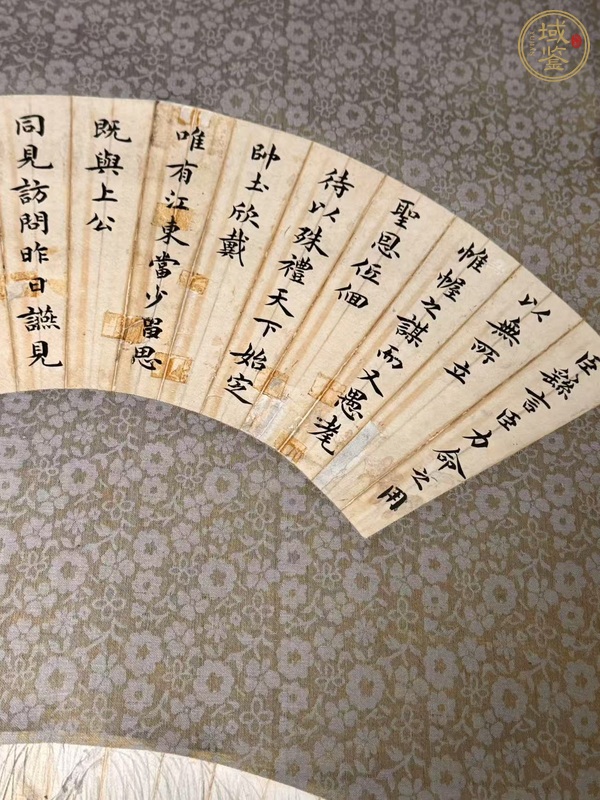 臣繇言臣力命之用
以無所立
惟幄之謀而又愚耄
聖恩低佪
待以殊禮天下始定
帥土欣戴
唯有江東當少留思
既與上公
同見訪問昨日讌見
域鉴